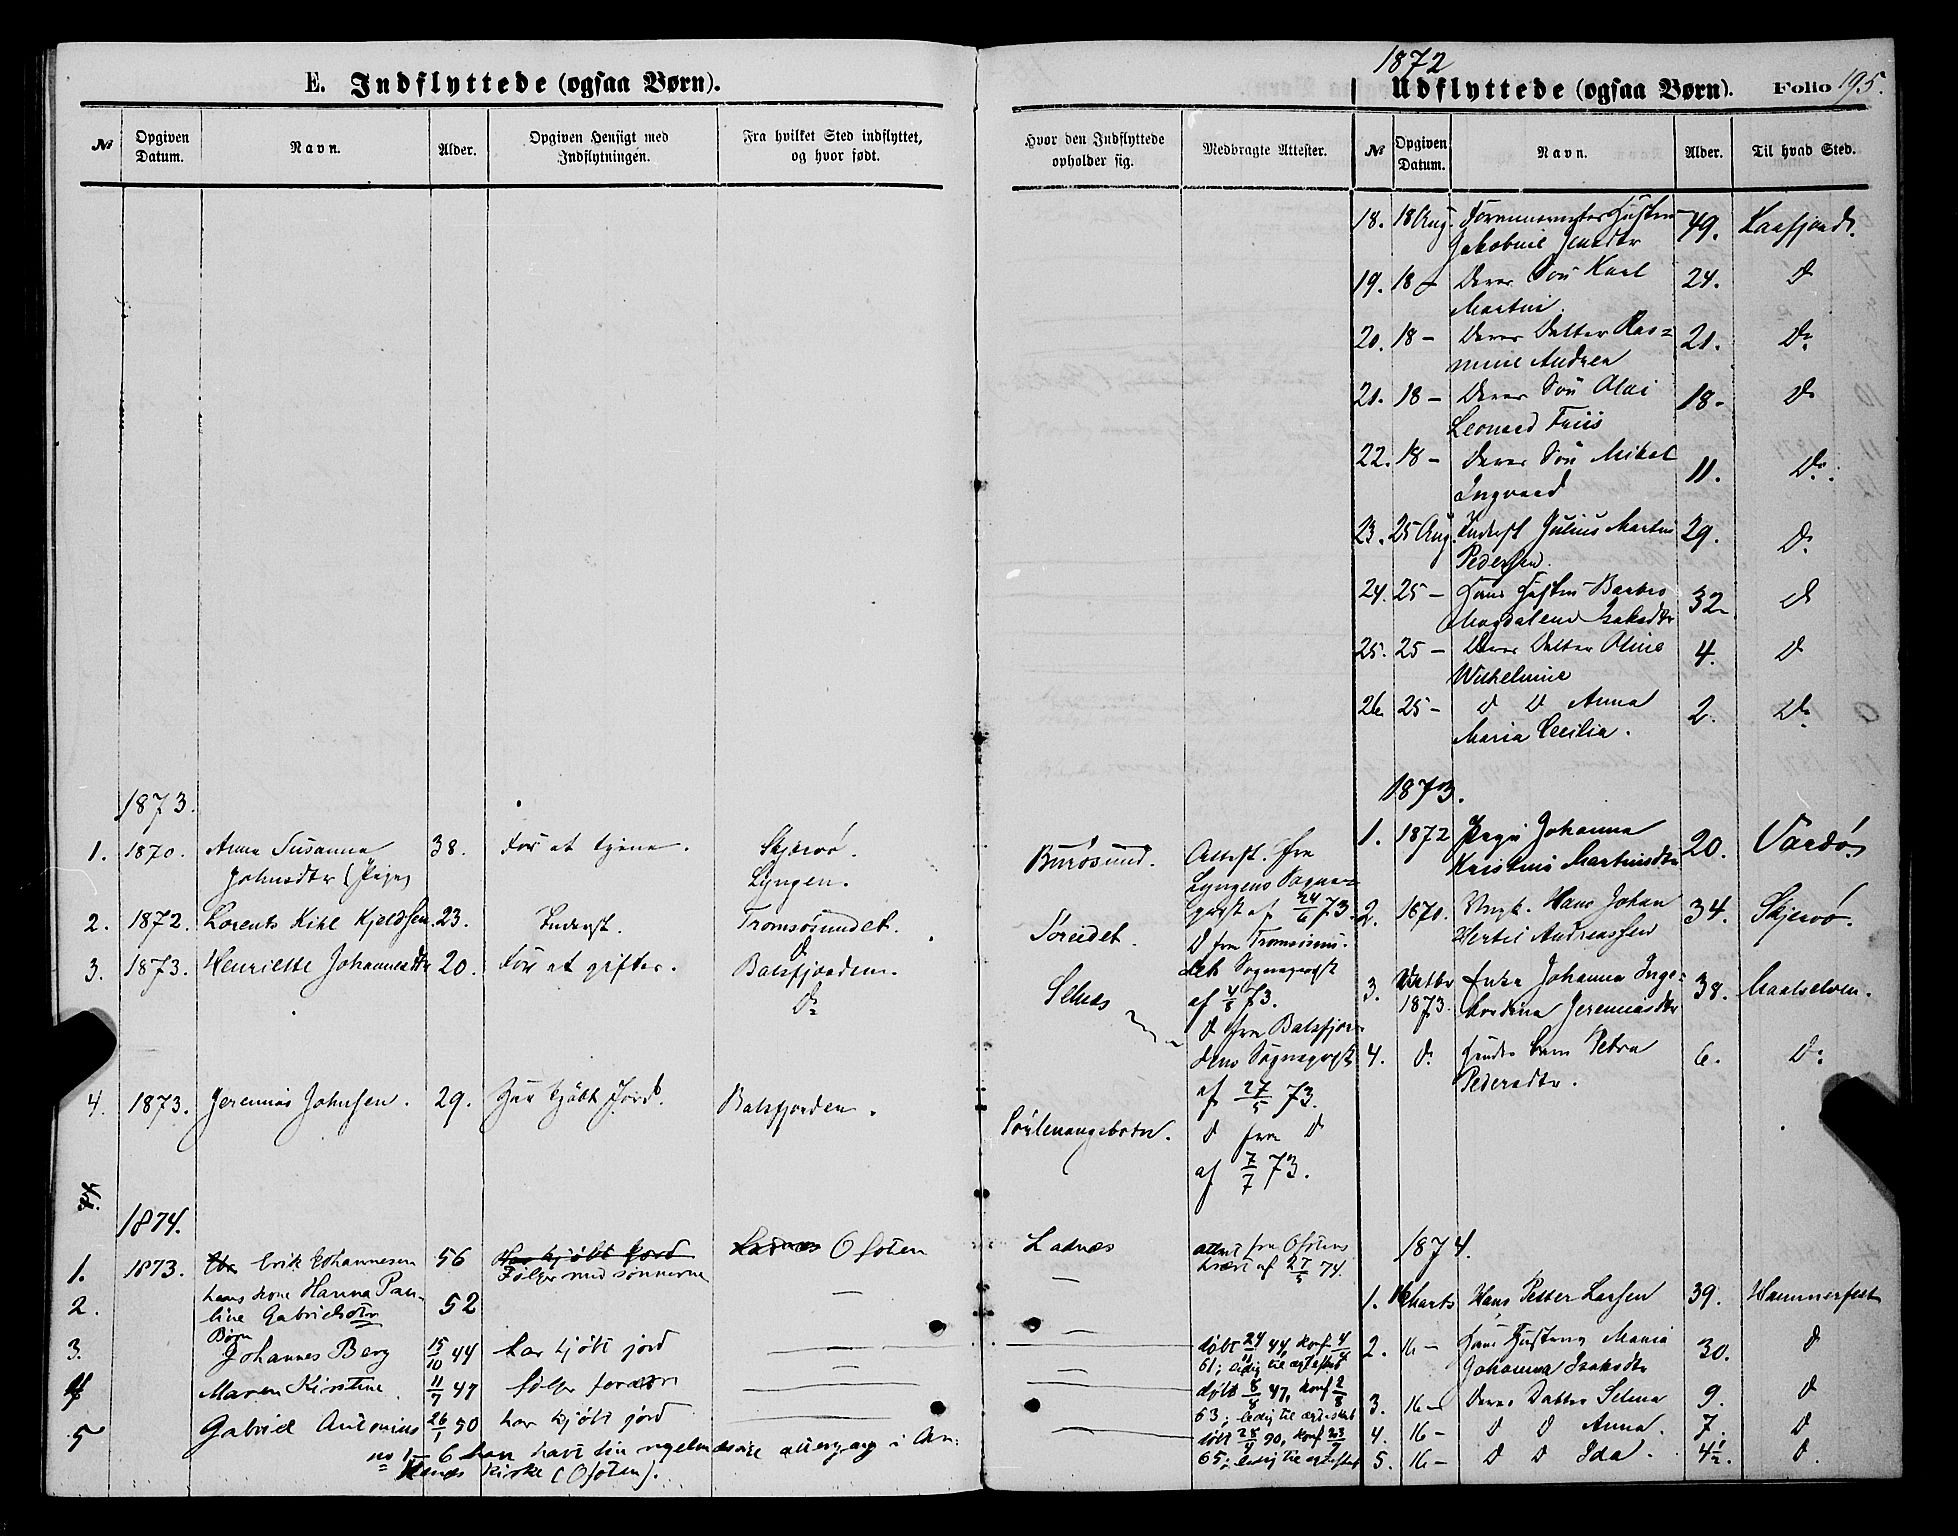 E. Indflyttede (ogsaa Børn).
№ Opgiven Datum. Navn. Alder. Opgiven Hensigt med Indflytningen. Fra hvilket Sted indflyttet, og hvor født.
1873.
1. 1870. Anna Susanna 38. For at tjene. Skjervø.
Johnsdtr (Pige) Lyngen.
2. 1872. Lorents Kihl Kjeldsen 23. Inderst. Tromsøsundet.
D
3. 1873. Henriette Johannesdtr 20. For at giftes. Balsfjorden.
Do
4. 1873. Jeremias Johnsen. 29. Har kjøbt Jord. Balsfjorden.
1874.
1. 1873. Erik Johannesen 56 Har kjøbt jord Ladnæs Ofoten
Følger med sønnerne
2. hans kone Hanna Pau- 52 —
line Gabrielsdtr
Børn
3. Johannes Berg 15/10 44 har kjøbt jord —
4 Maren Kirstine 11/7 47 følger foræld. —
5 Gabriel Antonius 26/1 50 har kjøbt jord —
no 1–6 han havt sin regelmæssige altergang i An-
kenæs kirke (Ofoten).
1872
Udflyttede (ogsaa Børn). Folio 195.
Hvor den Indflyttede opholder sig. Medbragte Attester. № Opgiven Datum. Navn. Alder. Til hvad Sted.
18. 18 Aug. Forannævntes Hustru 49. Kaafjord.
Jakobine Jensdtr
19. 18 – Deres Søn Karl 24. D
Martin
20. 18 – Deres Datter Ras= 21. Do
mine Andrea
21. 18 – Deres Søn Olai 18. Do
Leonard Friis
22. 18 – Deres Søn Mikal 11. Do.
Ingvard
23. 25 Aug. Inderst Julius Martin 29. Do
Pedersen.
24. 25 – Hans Hustru Barbro 32 D
Magdalena Isaksdtr
25. 25 – Deres Datter Oline 4. D
Wilhelmine
26 25 – D D Anna 2. Do
Maria Cecilia.
1873.
Burøsund. Attest. fra 1. 1872 Pige Johanna 20. Vardø
Lyngens Sogne= Kristine Martinsdtr
præst af 24/6 73. 2. 1870. Ungk. Hans Johan 34. Skjervø.
Søreidet. D fra Tromsøsun- Hertil Andreassen
dets Sognepræst 3. Oktbr Enke Johanna Inge- 38. Maalselven.
Selnæs af 4/8 73. 1873. bordina Jeremiasdtr
D fra Balsfjor-
dens Sognepræst 4. D. Hendes barn Petra 6. Do
af 27/5 73. Pedersdtr.
Sørlenangsbotn. D fra D
af 7/7 73.
Ladnæs attest fra Ofotens 1874.
— af 27/5 74.
1. 16 Marts Hans Petter Larsen 39. Hammerfest
— døbt 24/11 44, konf 4/4 2. 16 – Hans Hustru Maria 30. D
61; ledig til ægteskab Johanna Isaksdtr
— døbt 8/8 47, konf 2/8 3. 16 – Deres Datter Selma 9. D
63; ledig til ægteskab
— døbt 28/4 50, konf 23/7 4. 16 – D D Anna. 7. D
65; ledig til ægteskab 5. 16 – D D Ida. 4½. D.